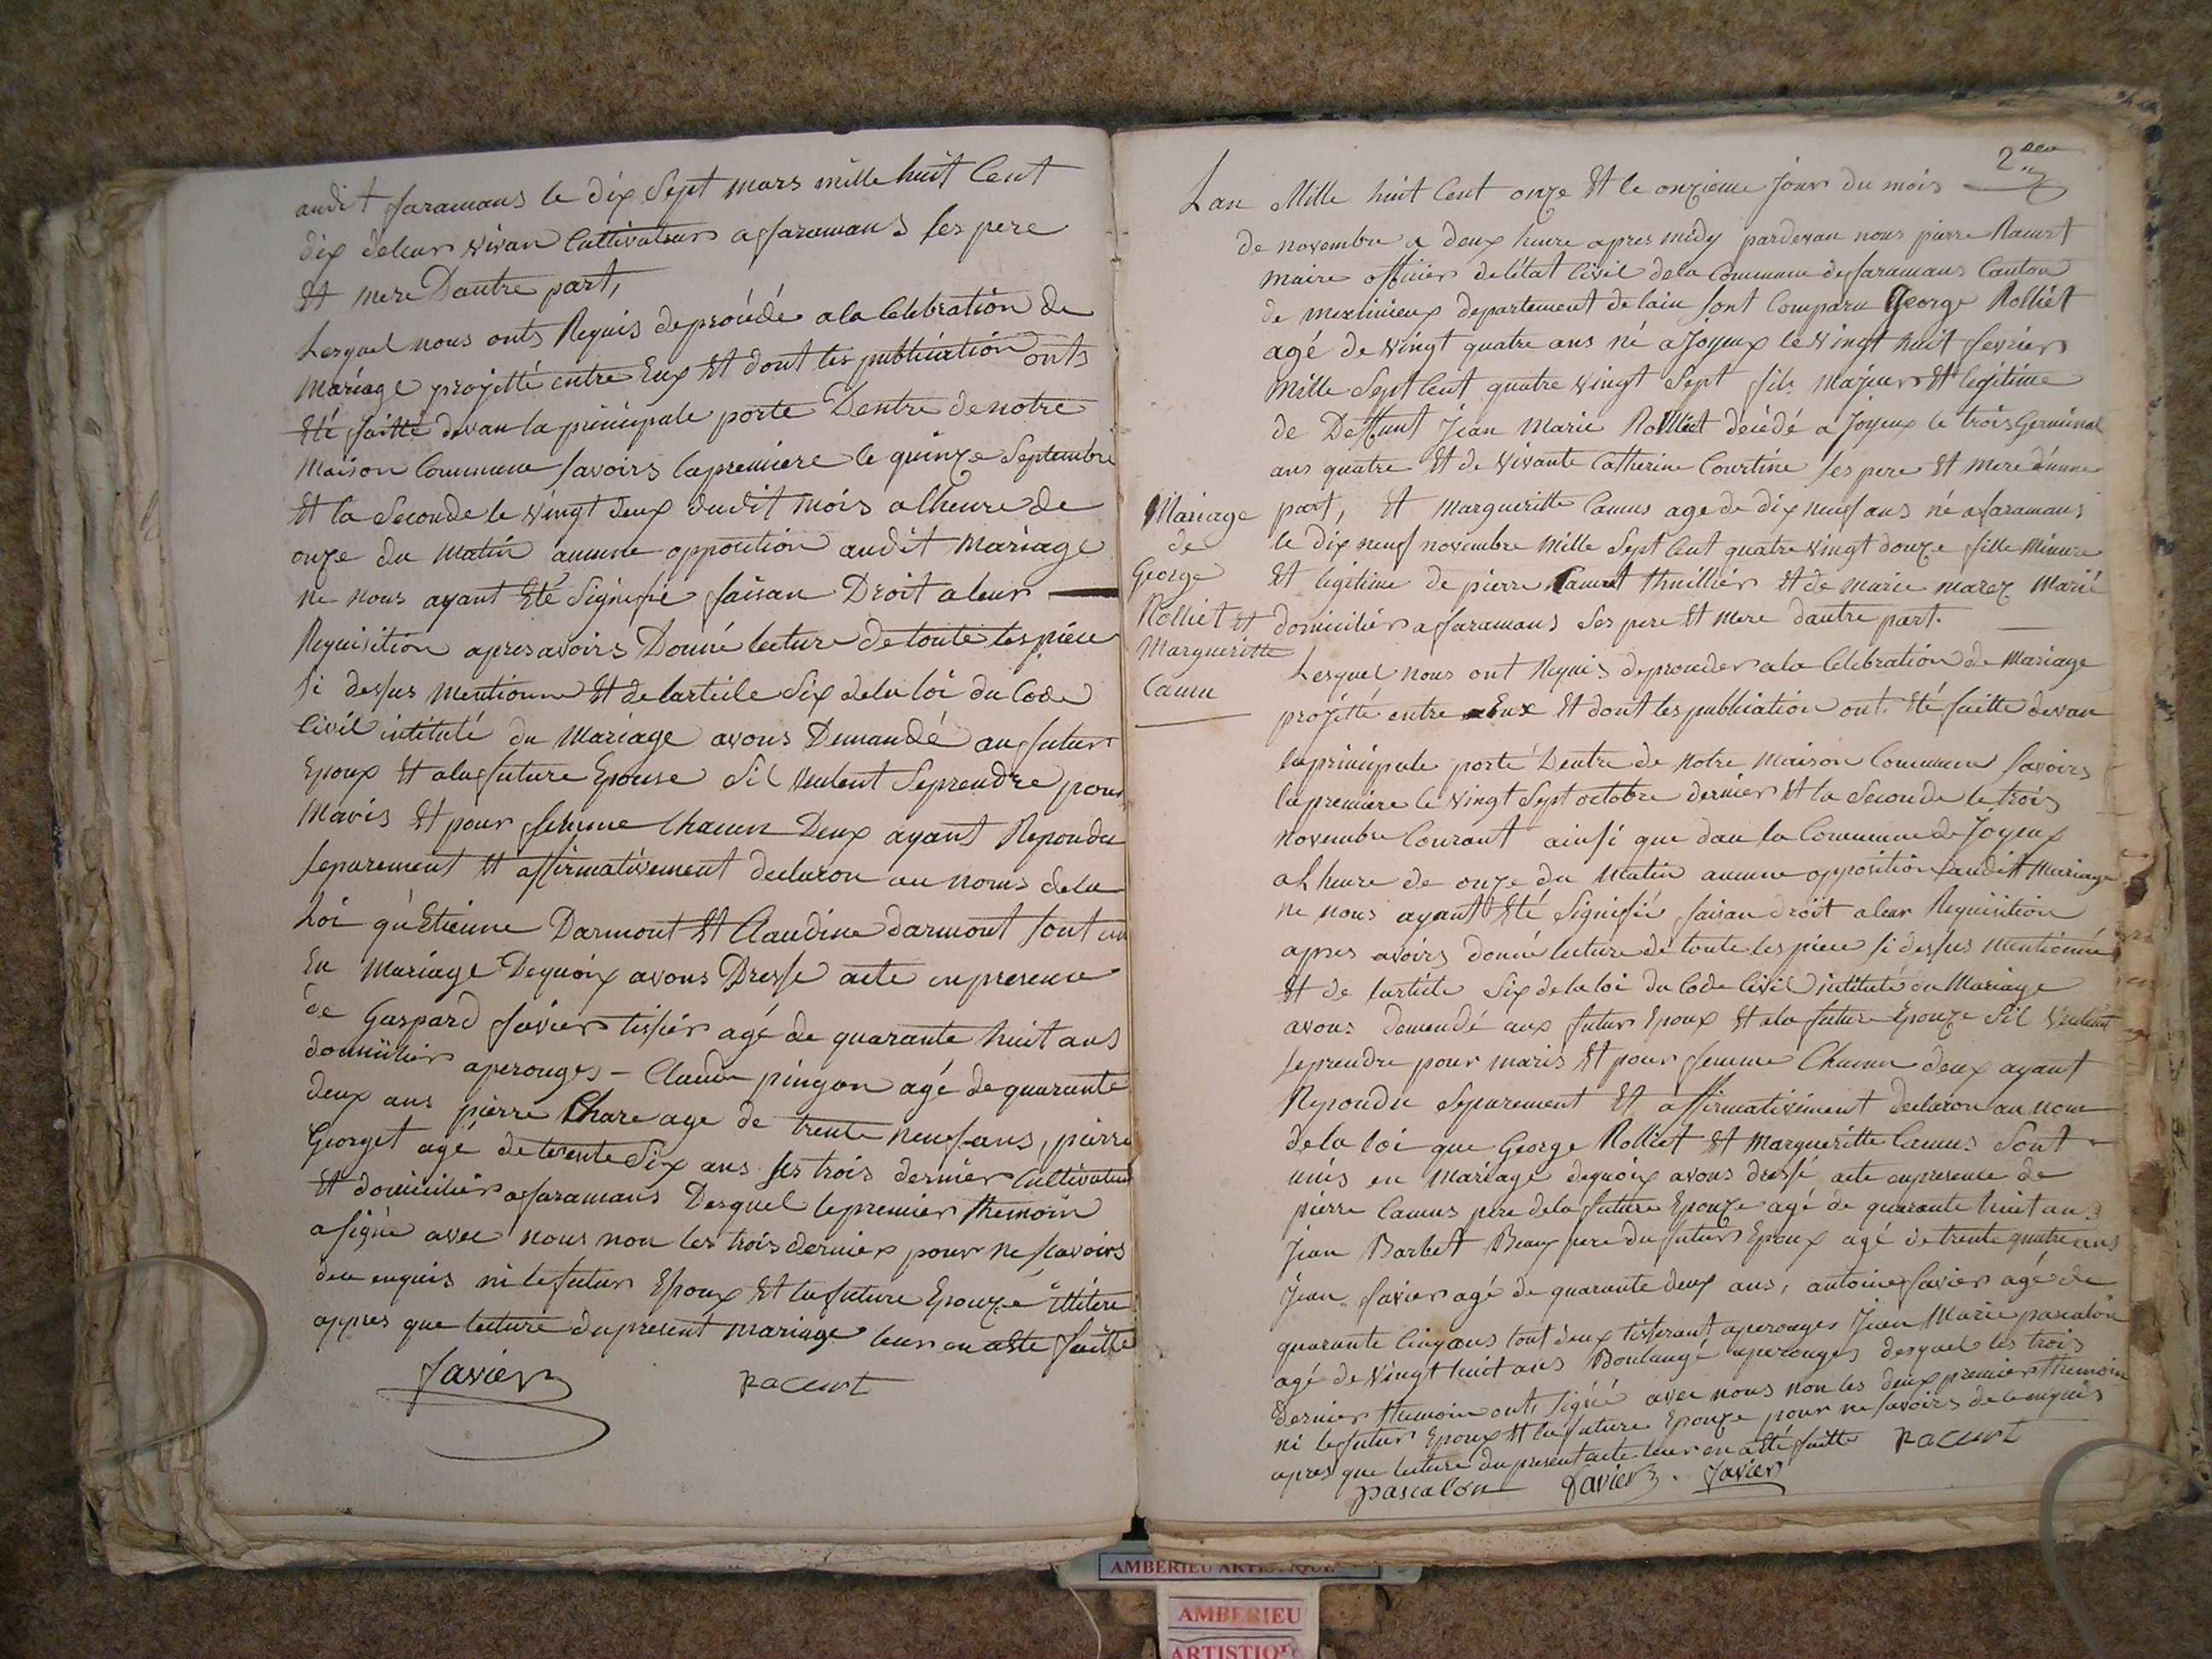 audit faramans le dix Sept mars mille huit Cent
dix deleur vivan Cultivateurs a faramans les pere
Et mere Dautre part,
Lesquel nous onts Requis deprocédé ala Celebration de
Mariage projetté entre Eux Et dont les publication onts
Eté faitte devan la principale porte Dentre denotre
Maison Commune Savoirs lapremiere le quinze Septembre
Et la Seconde le vingt deux dudit mois alheure de
onze du Matin aucune opposition audit Mariage
ne nous ayant Eté Signifié faisan Droit aleur
Requisition apres avoirs Donné lecture de toute les piece
si dessus mentionne Et de larticle Six dela loi du Code
Civil intitulé du Mariage avons Demandé au futur
Epoux Et ala future Epouse Sil veulent Seprendre pour
Maris Et pour femme Chacun Deux ayant Repondu
Separement Et affirmativement declaron au noms dela
Loi qu'Etienne Darmont Et Claudine darmont Sont uni
En Mariage Dequoix avons Dressé acte enpresence
de Gaspard favier tissier agé de quarante huit ans
domicilier aperouges - Claude pingon agé de quarante
deux ans pierre Chare age de trente neuf ans, pierre
Georget agé de trente Six ans les trois dernier Cultivateur
Et domicilier a faramans Desquel lepremier themoin
a signé avec nous non les trois dernier pour ne savoirs
dece enquis ni le futur Epoux Et la future Epouze illitere
appres que lecture dupresent mariage leur en a été faitte
favier
Racurt
2.eme
Lan Mille huit Cent onze Et le onzieme Jour du mois
de novembre a deux heure apres midy pardevan nous pierre Racurt
maire officier delétat Civil dela Commune de faramans Canton
de meximieux departement delain sont Comparu George Rolliet
agé de vingt quatre ans né a Joyeux le vingt huit fevrier
mille Sept Cent quatre vingt Sept fils Majeur Et legitime
de Deffunt Jean Marie Rolliet decédé a Joyeux le trois Germinal
ans quatre Et de vivante Catherine Courtine ses pere Et mere d'unne
part, Et Margueritte Camus age de dix neuf ans né a faramans
le dix neuf novembre Mille Sept Cent quatre vingt douze fille Mineure
Et legitime de pierre Camus thuillier Et de marie marez Marié
domicilier a faramans Ses pere Et mere dautre part.
Mariage
de
George
Rolliet Et
Margueritte
Camu
Lesquel nous ont Requis deproceder ala Celebration de Mariage
projetté entre Eux Et dont les publication ont Eté faitte devan
laprincipale porte Dentre de notre Maison Commune Savoirs
lapremiere le vingt Sept octobre dernier Et la Seconde le trois
novembre Courant ainsi que dan la Commune de Joyeux
alheure de onze du Matin aucune opposition audit Mariage
ne nous ayant Eté Signifié faisan droit aleur Requisition
apres avoirs donné lecture de toute les piece si dessus mentionnée
Et de larticle Six dela loi du Code Civil intitulé du Mariage
avons demendé aux futur Epoux Et ala future Epouze Sil veulent
seprendre pour maris Et pour femme Chacun deux ayant
Repondu Separement Et affirmativement declaron au nom
de la loi que George Rolliet Et Margueritte Camus Sont
unis en Mariage dequoix avons dressé acte enpresence de
pierre Camus pere dela future Epouze agé de quarante huit ans
Jean Barbet Beaux pere du futur Epoux agé de trente quatre ans
Jean favier agé de quarante deux ans, antoine favier agé de
quarante Cinq ans tout deux tisserant aperouges Jean Marie pascalon
agé de vingt huit ans Boulangé aperouges desquel les trois
dernier themoin onts signé avec nous non les deux premier themoin
ni le futur Epoux Et la future Epouze pour ne savoirs dece enquis
apres que lecture du present acte leur en a été faitte Racurt
pascalon favier. favier
AMBERIEU ARTISTIQUE
AMBERIEU
ARTISTIQUE